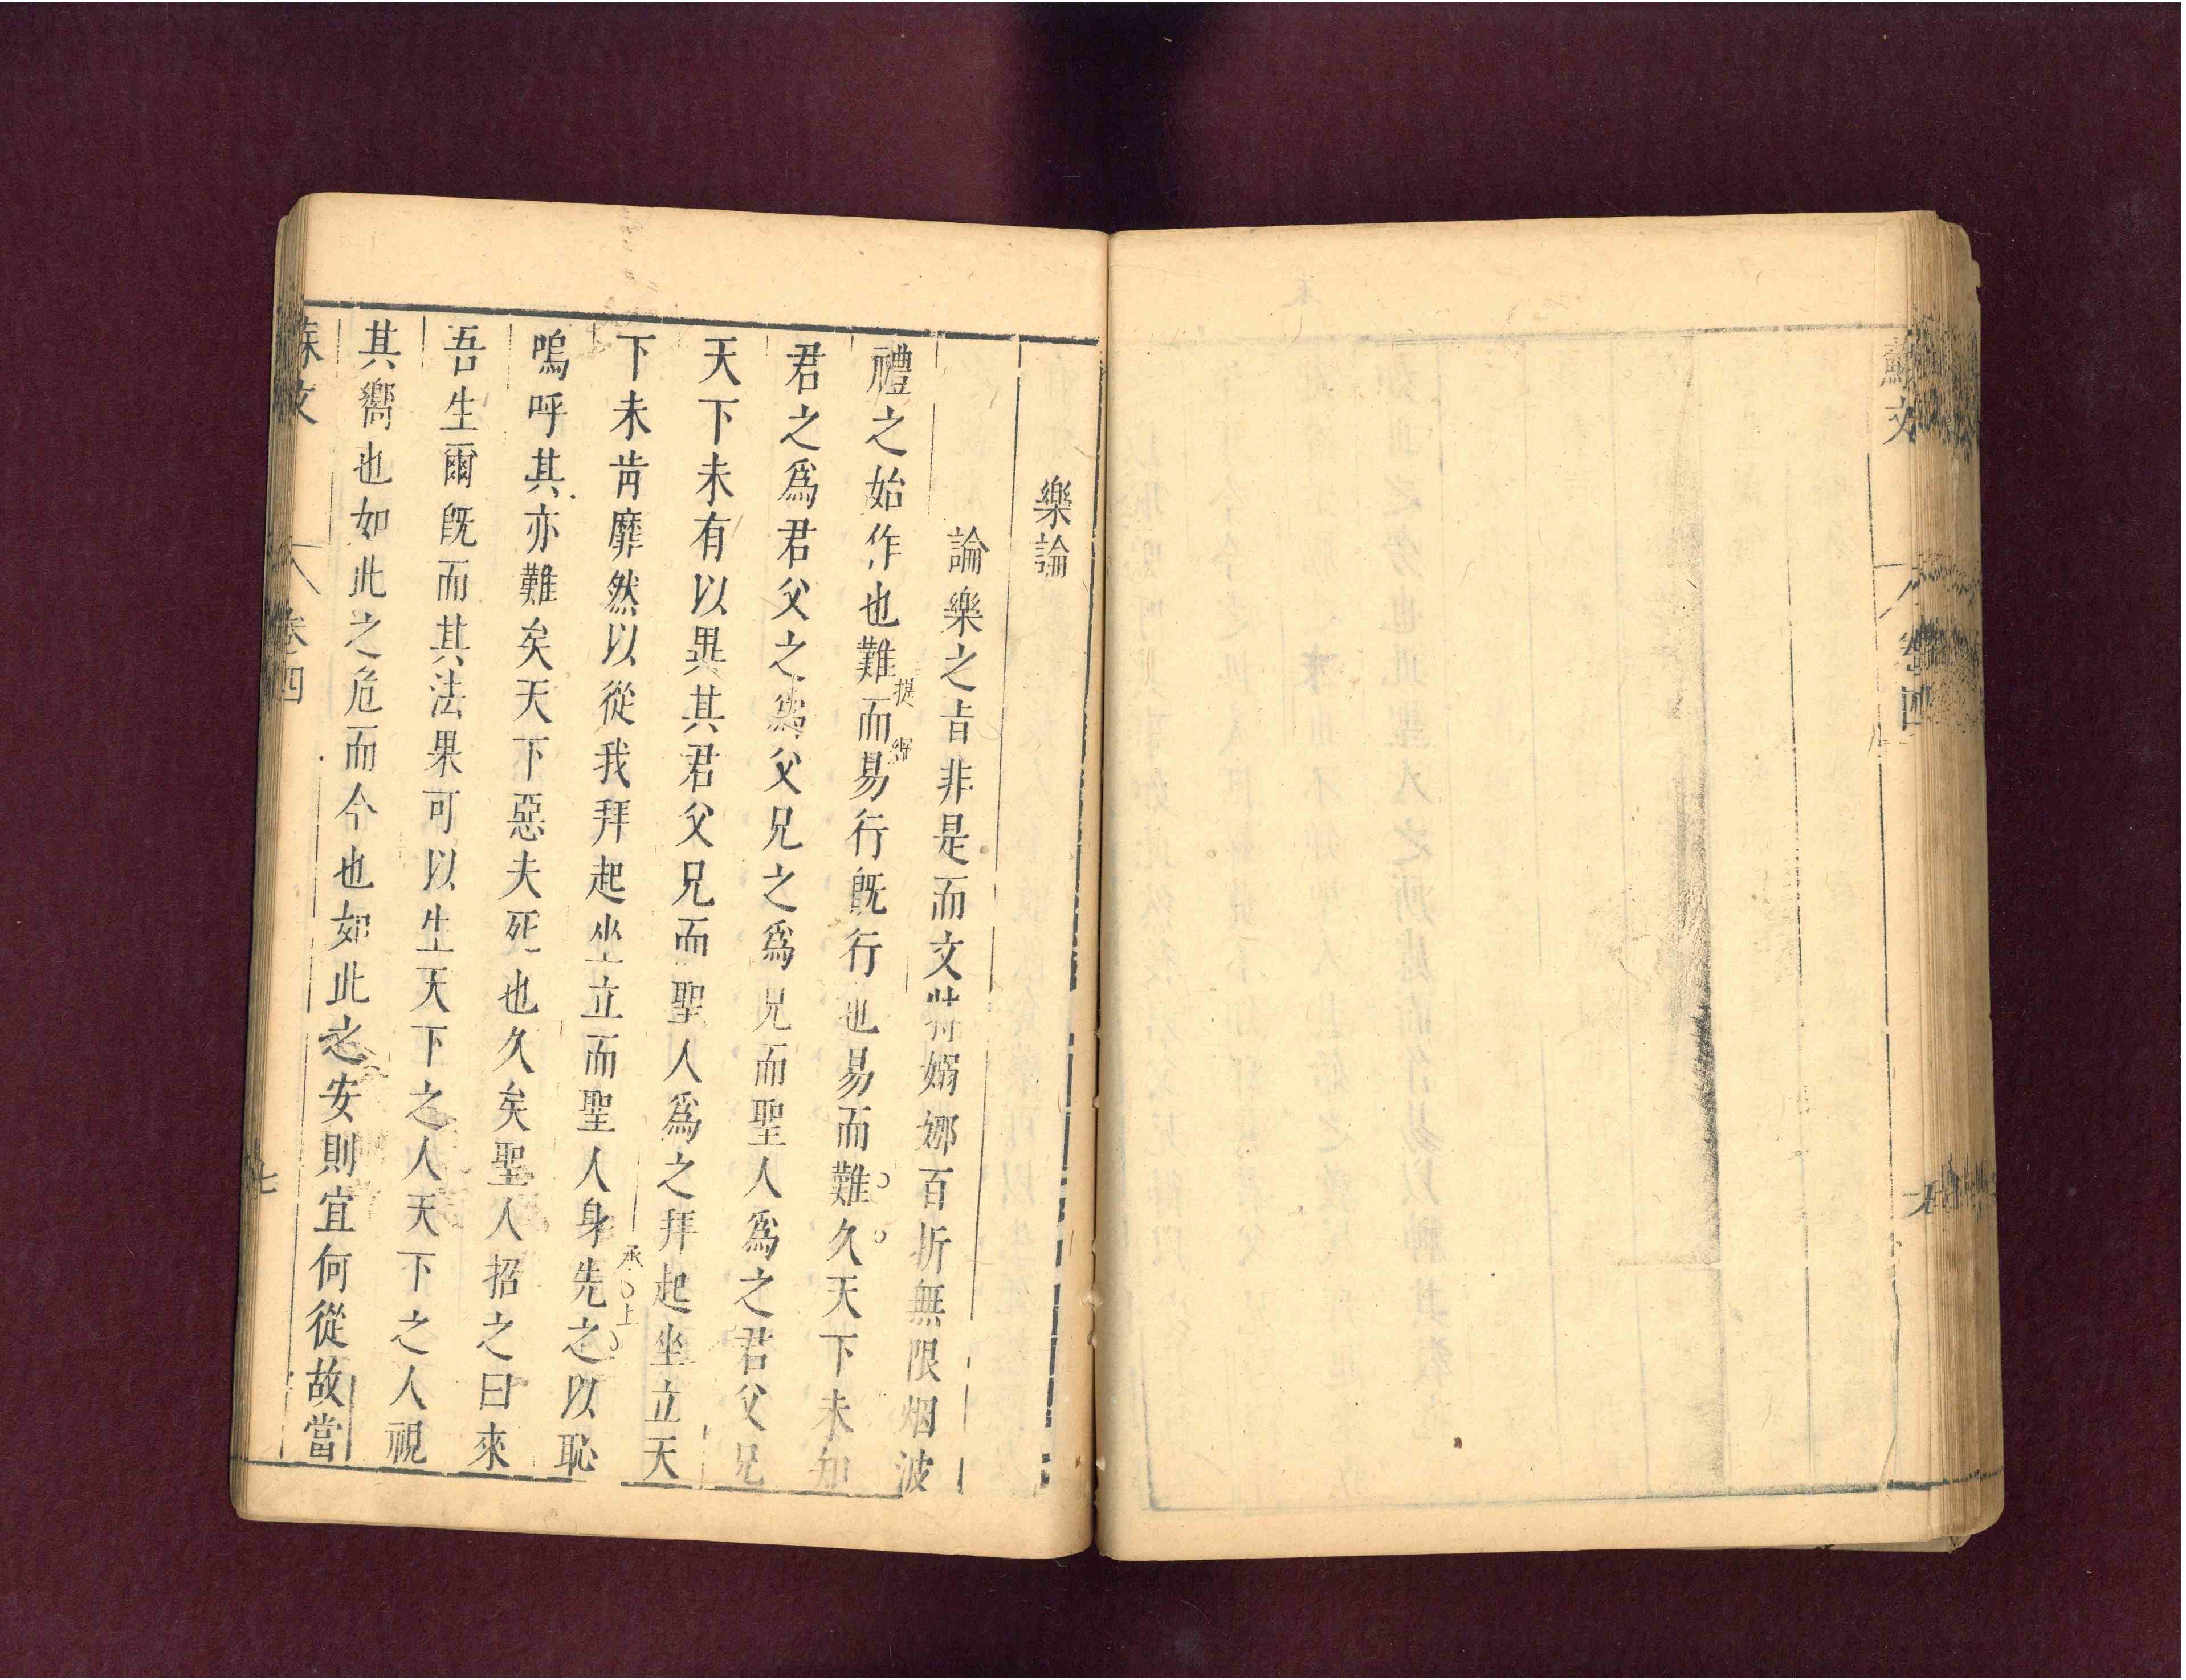 蘇文
卷四
樂論
論樂之旨非是而文特嫋娜百折無限烟波
禮之始作也難而易行旣行也易而難久天下未知
提
君之爲君父之爲父兄之爲兄而聖人爲之君父兄
天下未有以異其君父兄而聖人爲之拜起坐立天
下未肯靡然以從我拜起坐立而聖人身先之以恥
承上
嗚呼其亦難矣天下惡夫死也久矣聖人招之曰來
吾生爾旣而其法果可以生天下之人天下之人視
其嚮也如此之危而今也如此之安則宜何從故當
蘇文
卷四
七